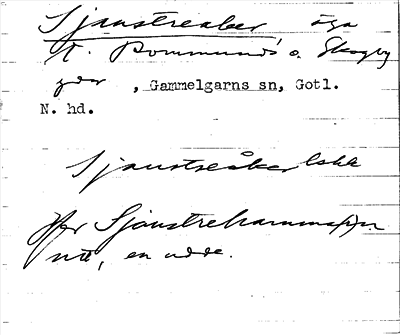 Sjaustreaker äga
t. Rommunds o. Skogby
gdr , Gammelgarns sn, Gotl.
N. hd.
Sjaustreåker
Jfr Sjaustrehammaren
en udde.